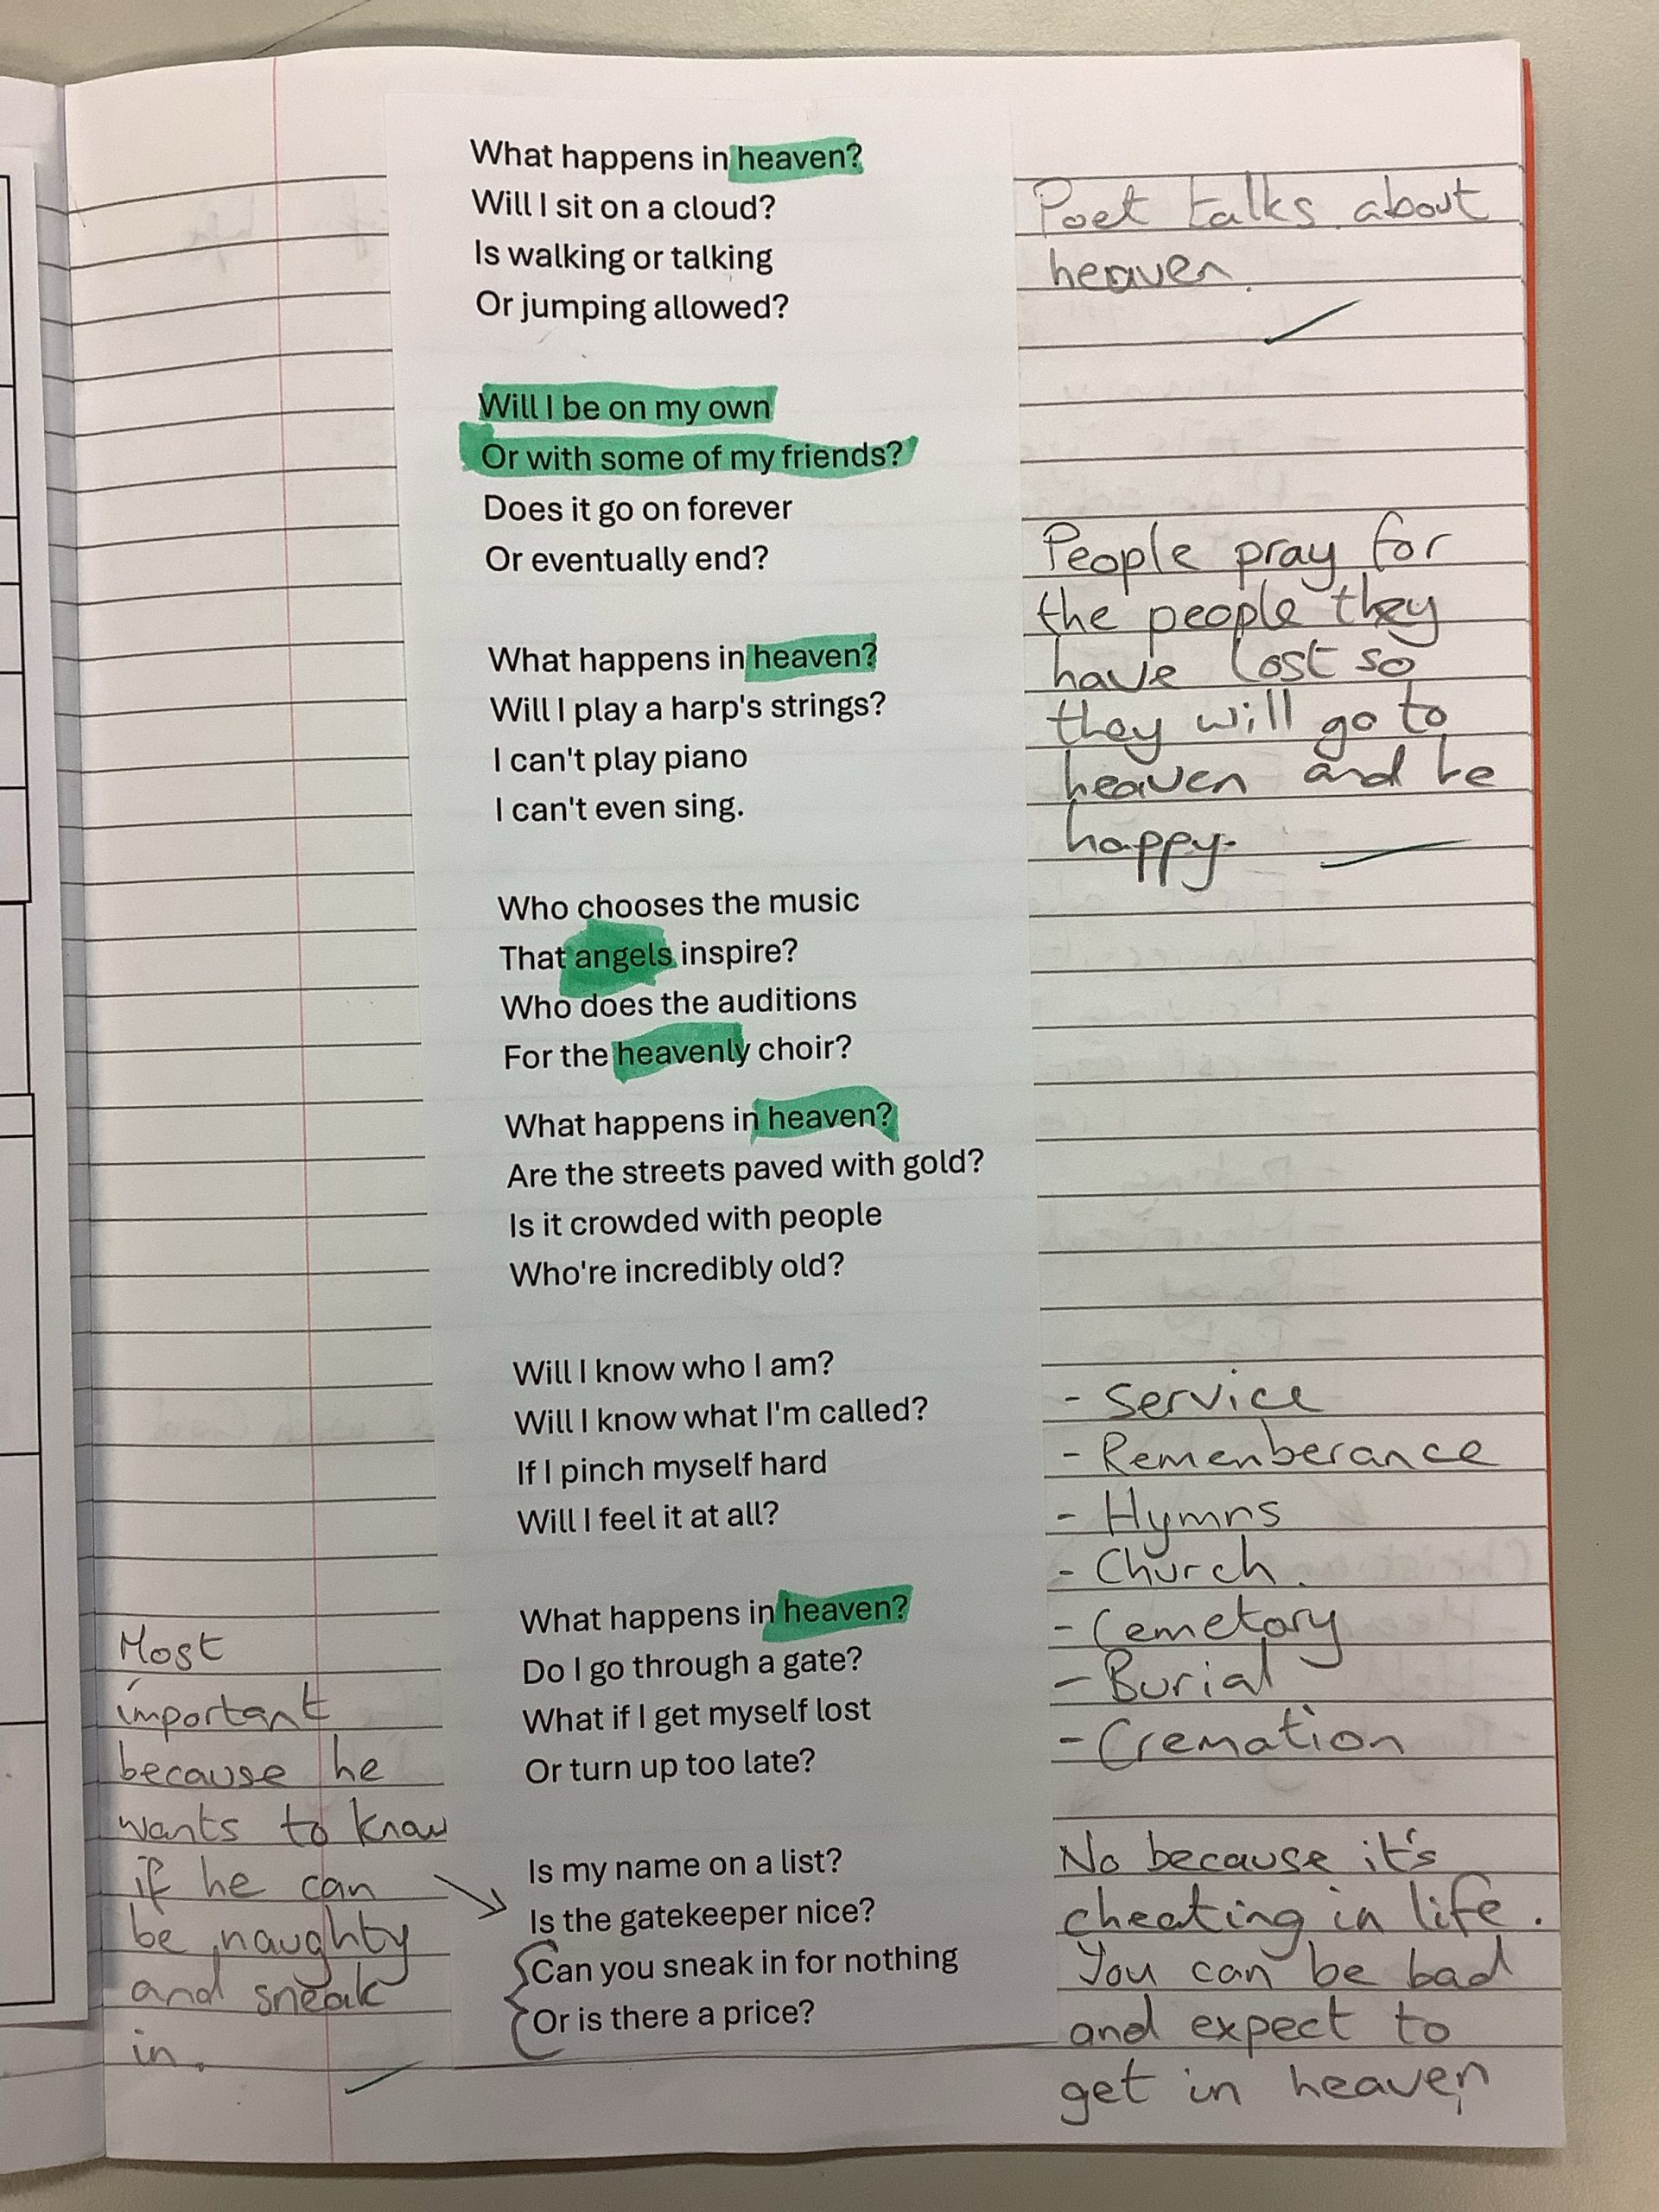 What happens in heaven?
Will I sit on a cloud?
Is walking or talking
Or jumping allowed?
Poet talks about
heaven.
Will I be on my own
Or with some of my friends?
Does it go on forever
Or eventually end?
People pray for
the people they
have lost so
they will go to
heaven and be
happy.
What happens in heaven?
Will I play a harp's strings?
I can't play piano
I can't even sing.
Who chooses the music
That angels inspire?
Who does the auditions
For the heavenly choir?
What happens in heaven?
Are the streets paved with gold?
Is it crowded with people
Who're incredibly old?
Will I know who I am?
Will I know what I'm called?
If I pinch myself hard
Will I feel it at all?
- Service
- Remenberance
- Hymns
- Church.
- Cemetory
- Burial
- Cremation
What happens in heaven?
Do I go through a gate?
What if I get myself lost
Or turn up too late?
Most
important
because he
wants to know
if he can
be naughty
and sneak
in.
Is my name on a list?
Is the gatekeeper nice?
Can you sneak in for nothing
Or is there a price?
No because it's
cheating in life.
You can be bad
and expect to
get in heaven